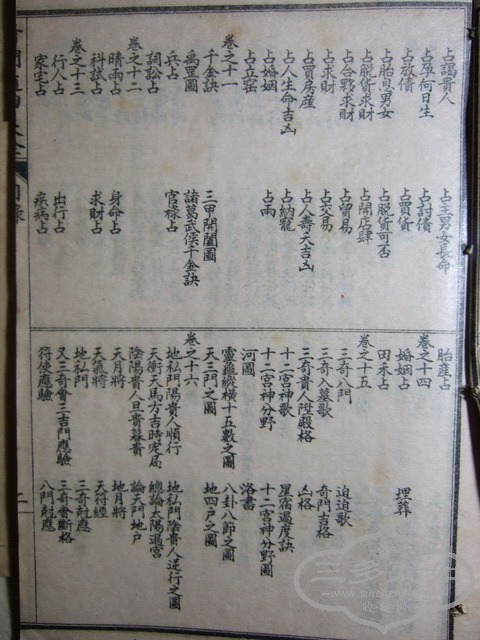 占謁貴人　占主男女長命
占孕何日生　占討債
占放債　占買貨
占胎息男女　占脫貨可否
占脫貨求財　占開店肆
占合夥求財　占貿易
占求財　占交易
占買房産　占人壽夭吉凶
占人生命吉凶　占納寵
占婚姻　占雨
占立窰
卷之十一
千金訣　三甲開闔圖
禹罡圖　諸葛武侯千金訣
兵占　官祿占
詞訟占
卷之十二
晴雨占　身命占
科試占　求財占
卷之十三
行人占　出行占
家宅占　疾病占
胎産占
卷之十四
婚姻占　埋葬
田禾占
卷之十五
三奇八門　迫迫歌
三奇入墓歌　奇門吉格
三奇貴人陞殿格　凶格
十二宮神歌　星宿過度訣
十二宮神分野　十二宮神分野圖
河圖　洛書
靈龜縱橫十五數之圖　八卦八節之圖
天三門之圖　地四戶之圖
卷之十六
地私門陽貴人順行　地私門陰貴人逆行之圖
天衝天馬方吉時定局　總論太陽過宮
陰陽貴人旦貴暮貴　論天門地戶
天月將　地月將
天氣將　天符經
地私門　三奇尅應
又三奇會三吉門應驗　三奇會斷格
符使應驗　八門尅應
目錄